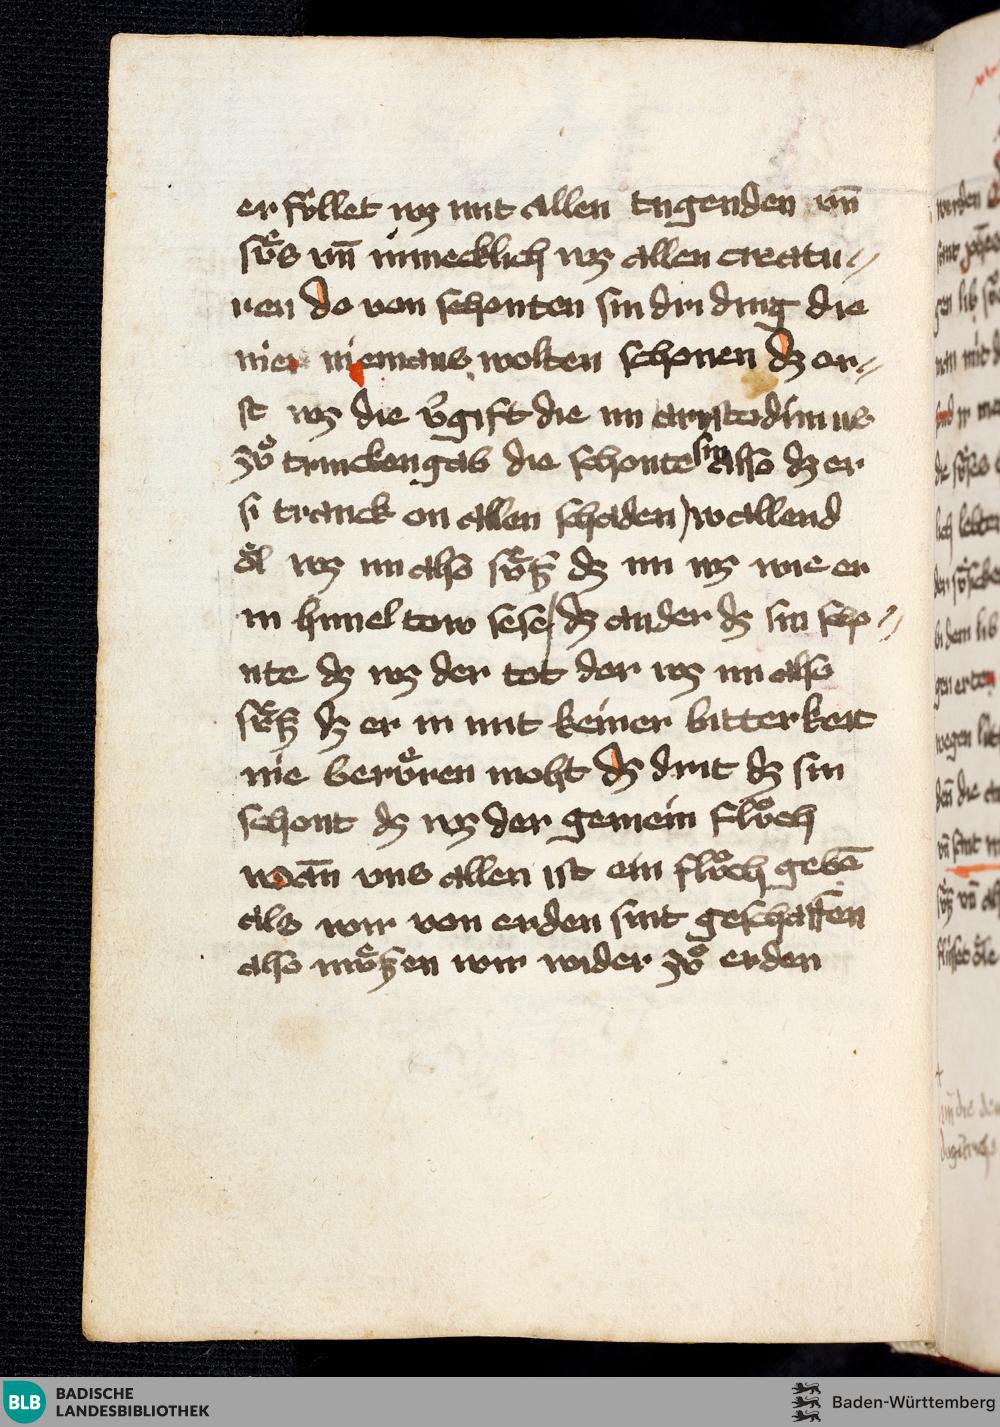 er fv́llet wz mit allen tugenden vn̄
sv̂s vn̄ minnecklich wz allen creatu=
ren do von schonten sin dri ding die
nie niemans wolten schonen dz er=
st wz die v̓gift die im aristodimus
zv̊ trincken gab die schonte sin also dz er
si tranck on allen schaden / wallend
o̓l wz im also sv̂ß dz im wz wie er
in himel tow sese / dz ander dz sin scho=
nte dz wz der tot der wz im also
sv̂ß dz er in mit keiner bitterkeit
nie berv̂ren moht dz drit dz sin
schont dz wz der gemein flv̊ch
wan̄ vns allen ist ein flv̊ch gebē
als wir von erden sint geschaffen
also mv̂ßen wir wider zv̊ erden
BLB BADISCHE
LANDESBIBLIOTHEK
Baden-Württemberg